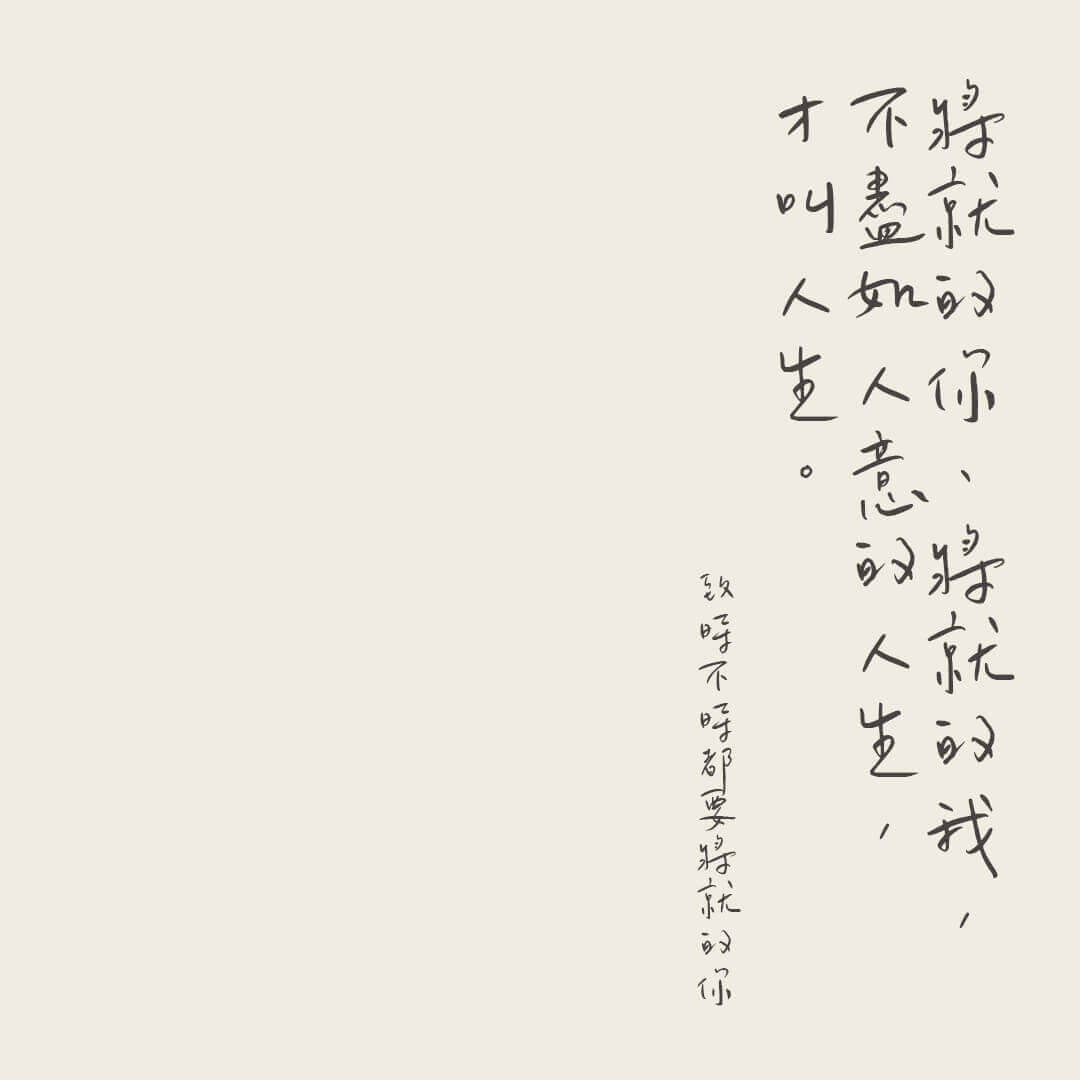 將就的你、將就的我，
不盡如人意的人生，
才叫人生。
致時不時都要將就的你